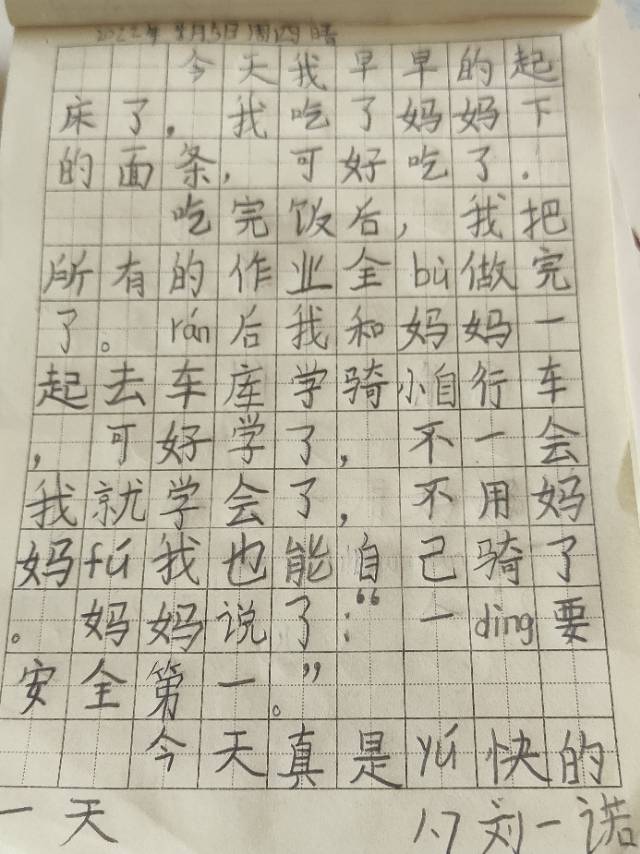 2022年 月5日周四晴
今天我早早的起
床了，我吃了妈妈下
的面条，可好吃了.
吃完饭后，我把
所有的作业全bù做完
了。rán后我和妈妈一
起去车库学骑小自行车
，可好学了，不一会
我就学会了，不用妈
妈fú我也能自己骑了
。妈妈说了：“一dìng要
安全第一。”
今天真是yú快的
一天 1.7刘一诺